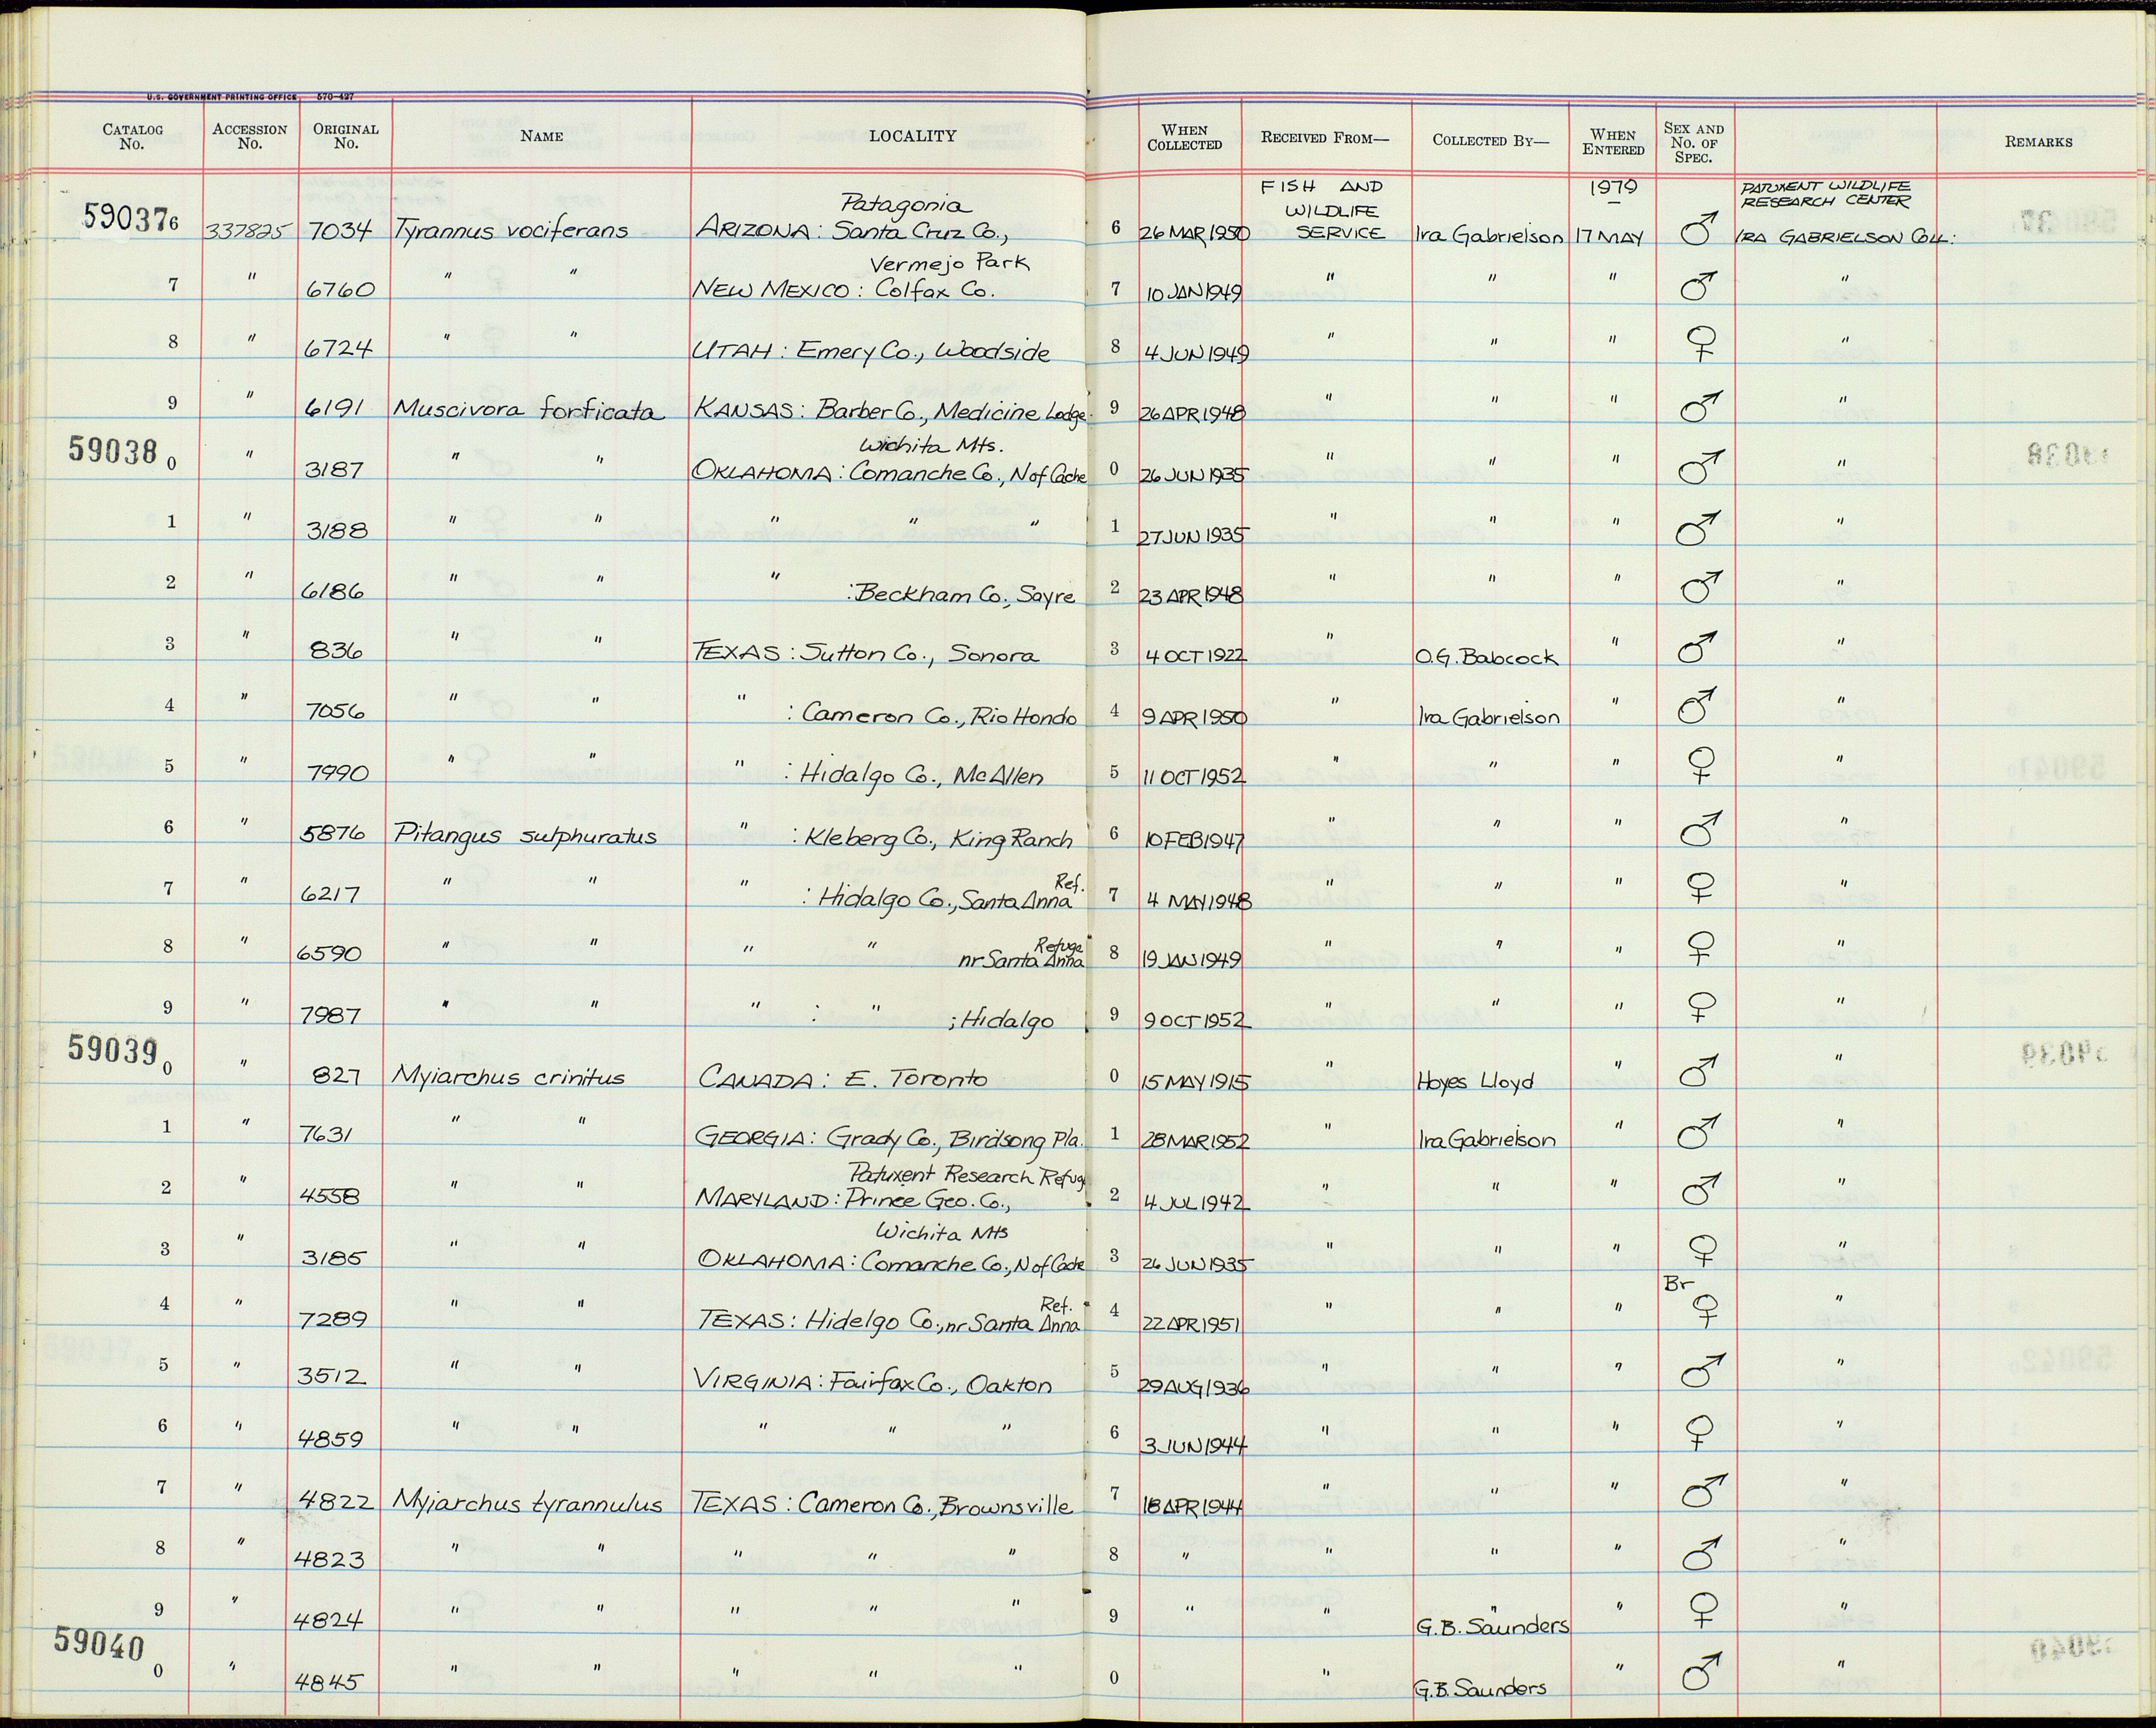 U.S. GOVERNMENT PRINTING OFFICE 570-427
CATALOG No. ACCESSION No. ORIGINAL No. NAME LOCALITY WHEN COLLECTED RECEIVED FROM— COLLECTED BY— WHEN ENTERED SEX AND No. OF SPEC. REMARKS
Patagonia FISH AND WILDLIFE 1979 PATUXENT WILDLIFE RESEARCH CENTER
590376 337825 7034 Tyrannus vociferans ARIZONA: Santa Cruz Co., 6 26 MAR 1950 SERVICE Ira Gabrielson 17 MAY ♂ IRA GABRIELSON COLL:
Vermejo Park
7 " 6760 " " NEW MEXICO: Colfax Co. 7 10 JAN 1949 " " " ♂ "
8 " 6724 " " UTAH: Emery Co., Woodside 8 4 JUN 1949 " " " ♀ "
9 " 6191 Muscivora forficata KANSAS: Barber Co., Medicine Lodge. 9 26 APR 1948 " " " ♂ "
Wichita Mts.
59038 0 " 3187 " " OKLAHOMA: Comanche Co., N of Cache 0 26 JUN 1935 " " " ♂ "
1 " 3188 " " " " " 1 27 JUN 1935 " " " ♂ "
2 " 6186 " " " :Beckham Co., Sayre 2 23 APR 1948 " " " ♂ "
3 " 836 " " TEXAS: Sutton Co., Sonora 3 4 OCT 1922 " O.G. Babcock " ♂ "
4 " 7056 " " " : Cameron Co., Rio Hondo 4 9 APR 1950 " Ira Gabrielson " ♂ "
5 " 7990 " " " : Hidalgo Co., McAllen 5 11 OCT 1952 " " " ♀ "
6 " 5876 Pitangus sulphuratus " : Kleberg Co., King Ranch 6 10 FEB 1947 " " " ♂ "
Ref.
7 " 6217 " " " : Hidalgo Co., Santa Anna 7 4 MAY 1948 " " " ♀ "
Refuge
8 " 6590 " " " " nr Santa Anna 8 19 JAN 1949 " " " ♀ "
9 " 7987 " " " : " ; Hidalgo 9 9 OCT 1952 " " " ♀ "
59039 0 " 827 Myiarchus crinitus CANADA: E. Toronto 0 15 MAY 1915 " Hoyes Lloyd ♂ "
1 " 7631 " " GEORGIA: Grady Co., Birdsong Pla. 1 28 MAR 1952 " Ira Gabrielson " ♂ "
Patuxent Research Refug
2 " 4558 " " MARYLAND: Prince Geo. Co., 2 4 JUL 1942 " " " ♂ "
Wichita Mts
3 " 3185 " " OKLAHOMA: Comanche Co., N of Cache 3 26 JUN 1935 " " " ♀ "
Ref. Br
4 " 7289 " " TEXAS: Hidelgo Co., nr Santa Anna 4 22 APR 1951 " " " ♀ "
5 " 3512 " " VIRGINIA: Fairfax Co., Oakton 5 29 AUG 1936 " " " ♂ "
6 " 4859 " " " " " 6 3 JUN 1944 " " " ♀ "
7 " 4822 Myiarchus tyrannulus TEXAS: Cameron Co., Brownsville 7 18 APR 1944 " " " ♂ "
8 " 4823 " " " " " 8 " " " " ♂ "
9 " 4824 " " " " " 9 " " " G.B. Saunders " ♀ "
59040 0 " 4845 " " " " " 0 " G.B. Saunders " ♂ "